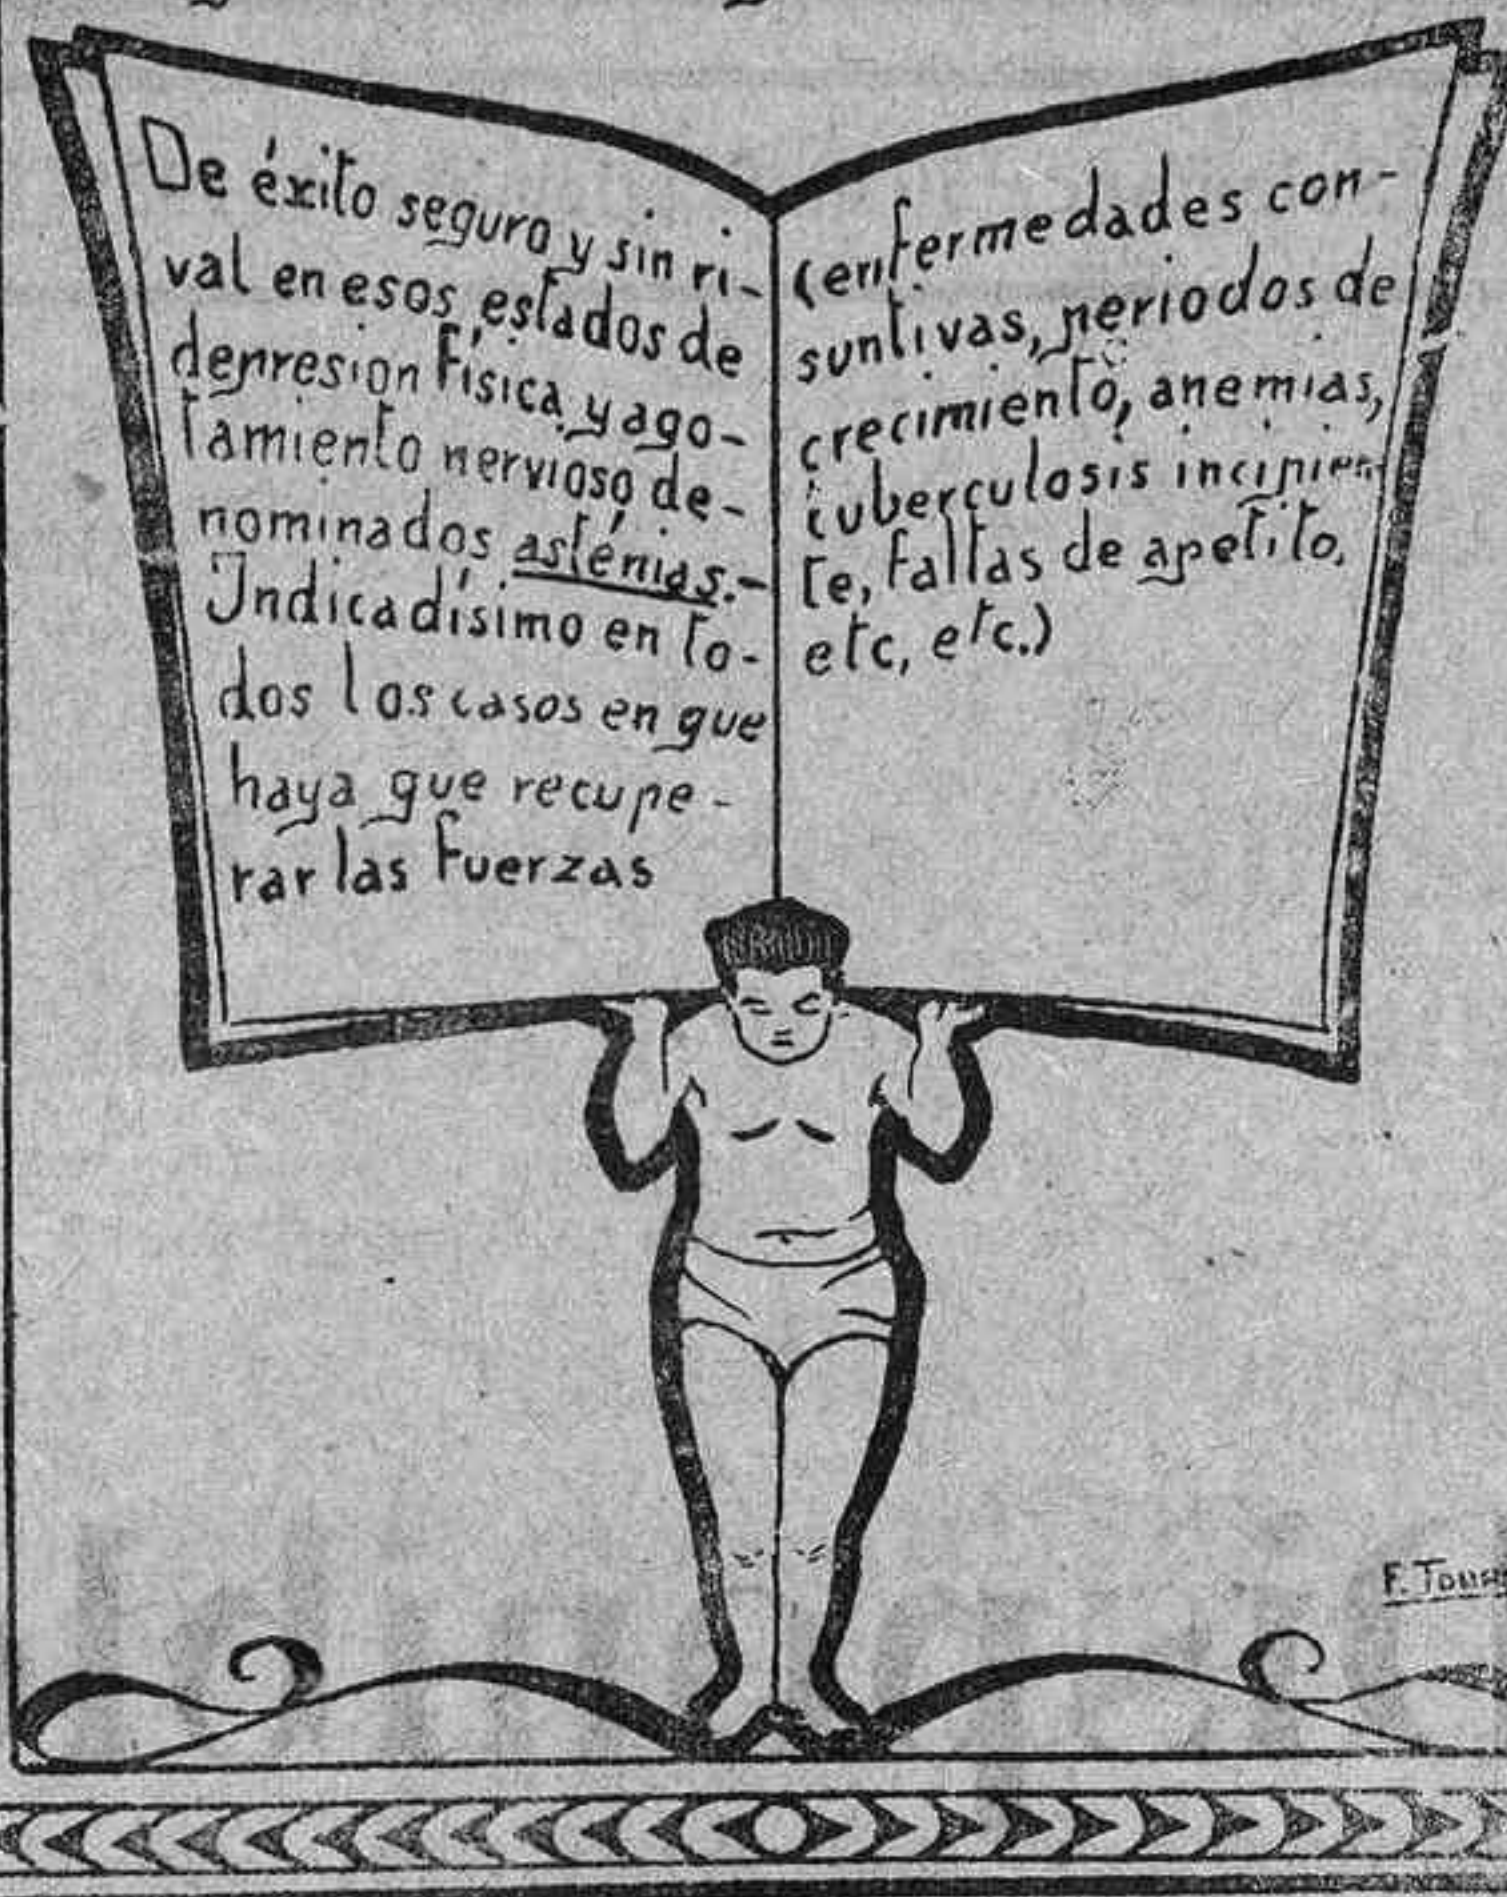 De éxito seguro y sin ri-
val en esos estados de
depresion física y ago-
tamiento nervioso de-
nominados asténias.-
Indicadísimo en to-
dos los casos en que
haya que recupe-
rar las fuerzas
(enfermedades con-
suntivas, periodos de
crecimiento, anemias,
tuberculosis incipien-
te, faltas de apetito,
etc, etc.)
F.